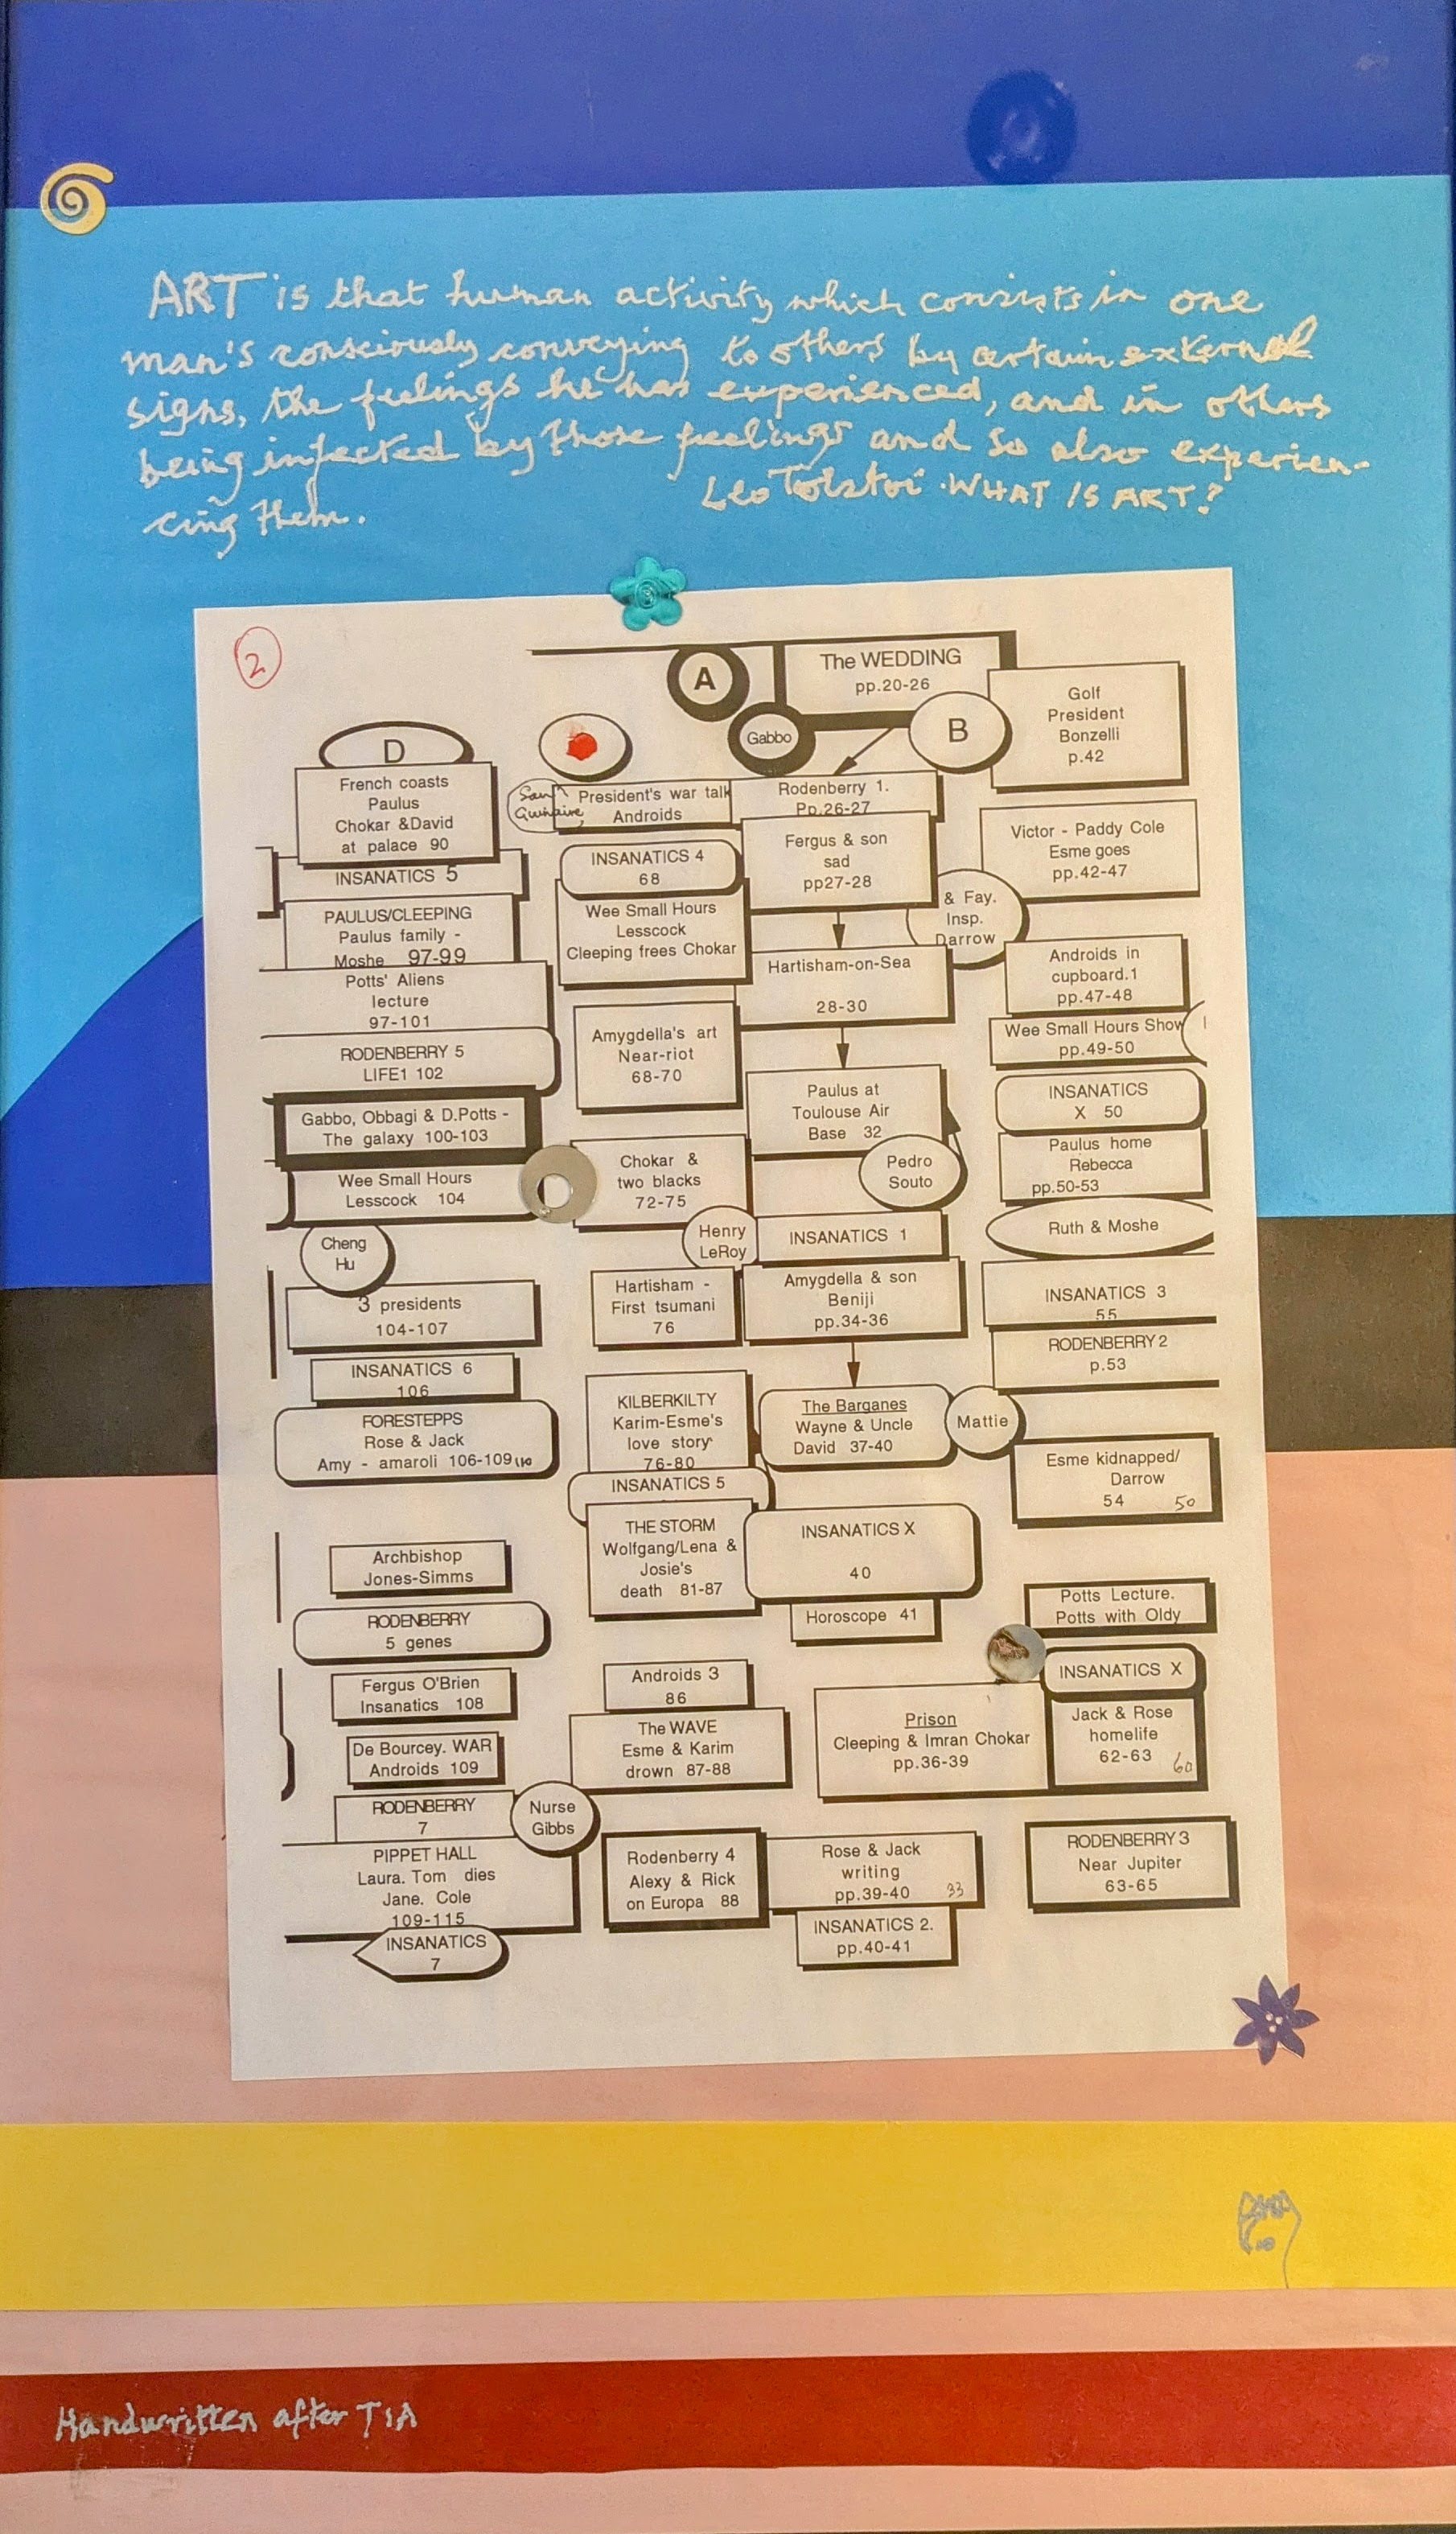 ART is that human activity which consists in one
man's consciously conveying to others by certain external
signs, the feelings he has experienced, and in others
being infected by those feelings and so also experien-
cing them.
Leo Tolstoi. WHAT IS ART?
2
A
The WEDDING
pp.20-26
Gabbo
B
Golf
President
Bonzelli
p.42
D
French coasts
Paulus
Chokar &David
at palace 90
INSANATICS 5
PAULUS/CLEEPING
Paulus family -
Moshe 97-99
Potts' Aliens
lecture
97-101
RODENBERRY 5
LIFE1 102
Gabbo, Obbagi & D.Potts -
The galaxy 100-103
Wee Small Hours
Lesscock 104
Cheng
Hu
3 presidents
104-107
INSANATICS 6
106
FORESTEPPS
Rose & Jack
Amy - amaroli 106-109 110
Archbishop
Jones-Simms
RODENBERRY
5 genes
Fergus O'Brien
Insanatics 108
De Bourcey. WAR
Androids 109
RODENBERRY
7
Nurse
Gibbs
PIPPET HALL
Laura. Tom dies
Jane. Cole
109-115
INSANATICS
7
San
President's war talk
Androids
INSANATICS 4
68
Wee Small Hours
Lesscock
Cleeping frees Chokar
Amygdella's art
Near-riot
68-70
Chokar &
two blacks
72-75
Henry
LeRoy
Hartisham -
First tsumani
76
KILBERKILTY
Karim-Esme's
love story
76-80
INSANATICS 5
THE STORM
Wolfgang/Lena &
Josie's
death 81-87
Androids 3
86
The WAVE
Esme & Karim
drown 87-88
Rodenberry 4
Alexy & Rick
on Europa 88
Rodenberry 1.
Pp.26-27
Fergus & son
sad
pp27-28
Hartisham-on-Sea
28-30
Paulus at
Toulouse Air
Base 32
Pedro
Souto
INSANATICS 1
Amygdella & son
Beniji
pp.34-36
The Barganes
Wayne & Uncle
David 37-40
Mattie
INSANATICS X
40
Horoscope 41
Prison
Cleeping & Imran Chokar
pp.36-39
Rose & Jack
writing
pp.39-40 33
INSANATICS 2.
pp.40-41
Victor - Paddy Cole
Esme goes
pp.42-47
& Fay.
Insp.
Darrow
Androids in
cupboard.1
pp.47-48
Wee Small Hours Show
pp.49-50
INSANATICS
X 50
Paulus home
Rebecca
pp.50-53
Ruth & Moshe
INSANATICS 3
55
RODENBERRY 2
p.53
Esme kidnapped/
Darrow
54 50
Potts Lecture.
Potts with Oldy
INSANATICS X
Jack & Rose
homelife
62-63 60
RODENBERRY 3
Near Jupiter
63-65
Handwritten after TIA